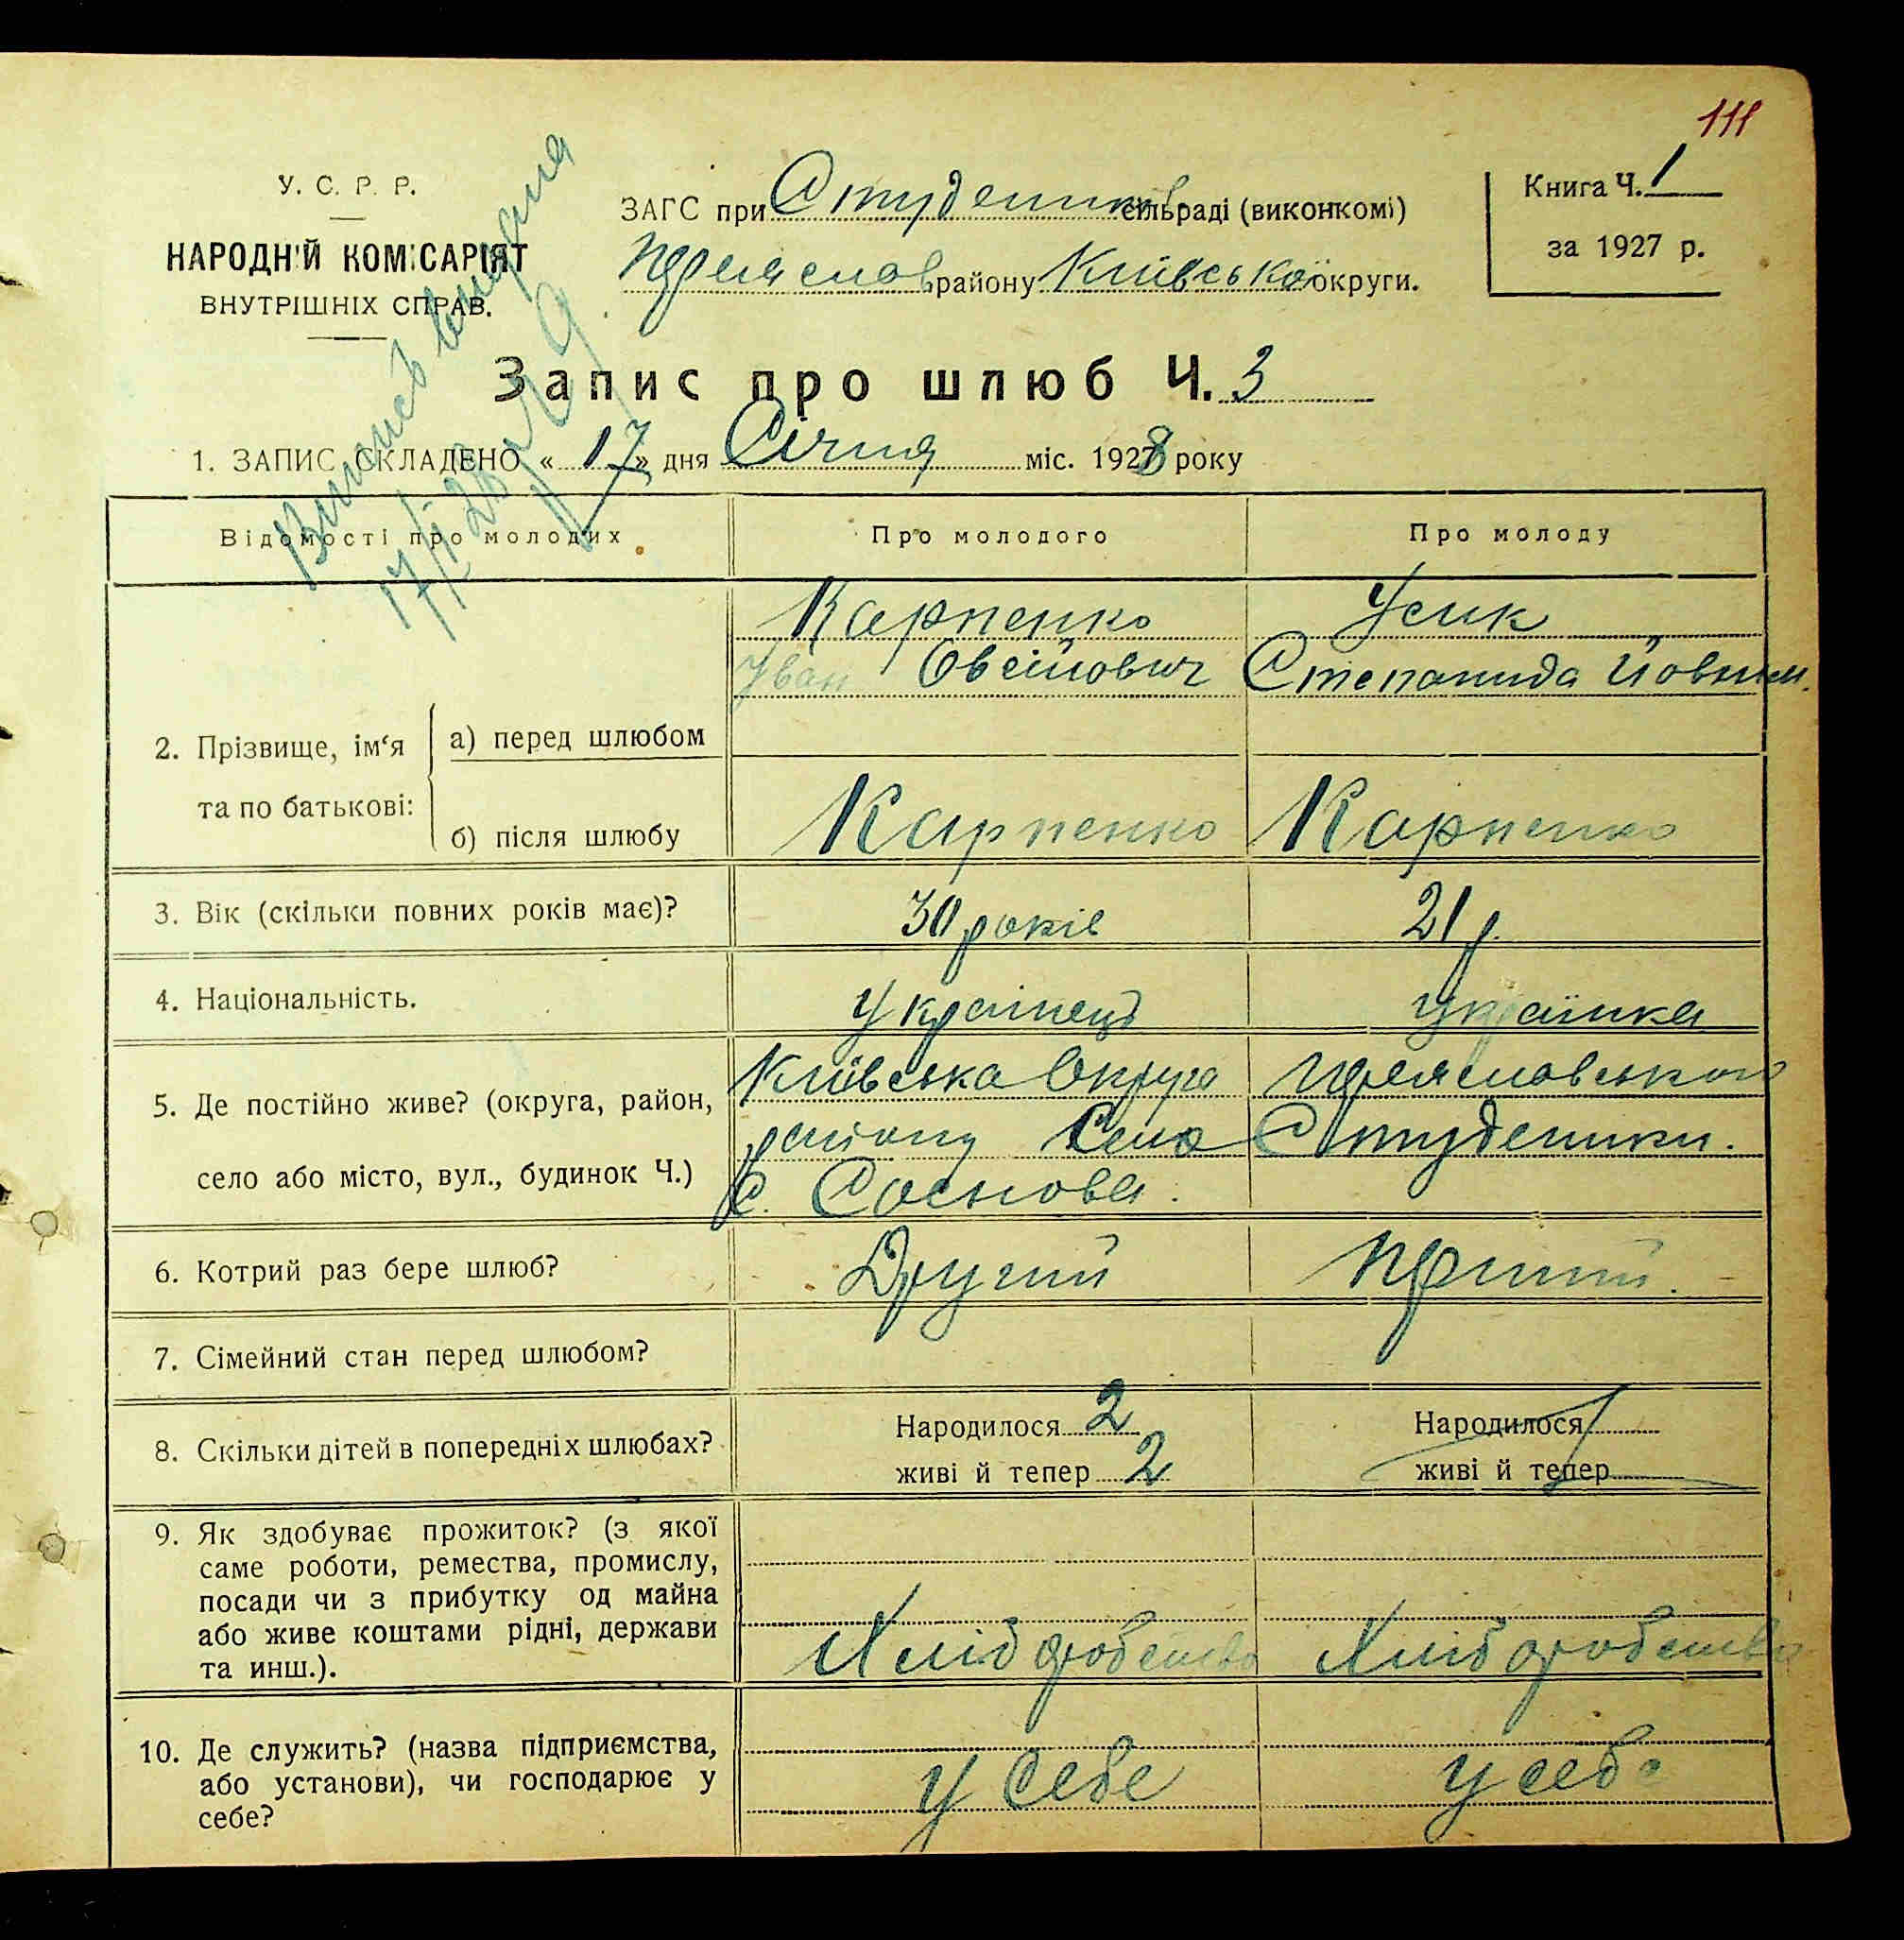 111
У. С. Р. Р.
НАРОДНІЙ КОМІСАРІЯТ
ВНУТРІШНІХ СПРАВ.
ЗАГС при Студеник сільраді (виконкомі)
Переяслов району Київської округи.
Книга Ч. 1
за 1927 р.
Випись видана
17/I 28 р.
Запис про шлюб Ч. 3
1. ЗАПИС СКЛАДЕНО «17» дня Січня міс. 1928 року
Відомості про молодих. Про молодого Про молоду
Карпенко Усик
Іван Овсійович Степанида Йовхим.
2. Прізвище, ім‘я та по батькові:
а) перед шлюбом
б) після шлюбу Карпенко Карпенко
3. Вік (скільки повних років має)? 30 років 21 р.
4. Національність. Українець українка
5. Де постійно живе? (округа, район, Київська Округа Переясловського
село або місто, вул., будинок Ч.) району Село Студеники.
с. Соснова.
6. Котрий раз бере шлюб? Другий Перший.
7. Сімейний стан перед шлюбом?
8. Скільки дітей в попередніх шлюбах? Народилося 2 Народилося
живі й тепер 2 живі й тепер
9. Як здобуває прожиток? (з якої
саме роботи, ремества, промислу,
посади чи з прибутку од майна
або живе коштами рідні, держави
та инш.). Хлібробство Хлібробство
10. Де служить? (назва підприємства,
або установи), чи господарює у
себе? у себе у себе